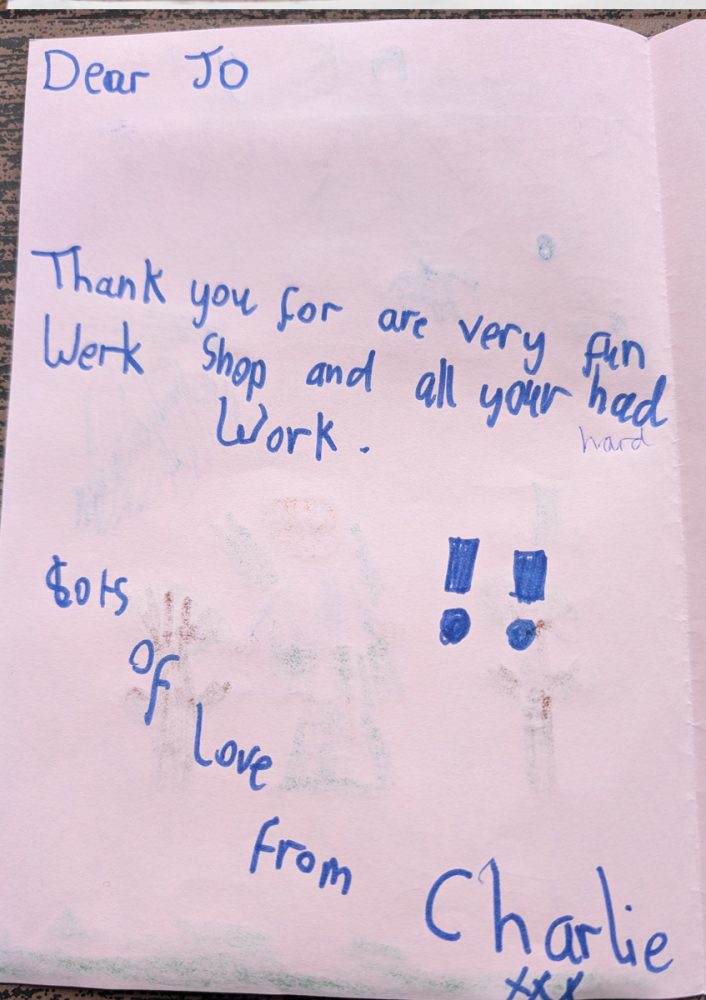 Dear JO
Thank you for are very fun
Werk Shop and all your had
hard
Work.
!!
Lots
of
Love
from
Charlie
xxx